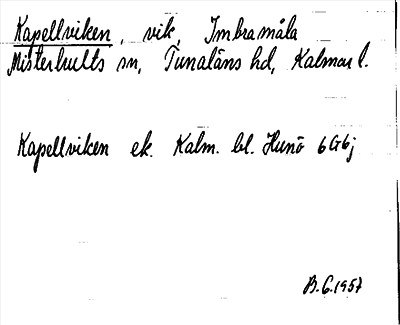 Kapellviken, vik, Imbramåla
Misterhults sn, Tunaläns hd, Kalmar l.
Kapellviken ek. Kalm. bl. Hunö 6G6j
B.G.1957